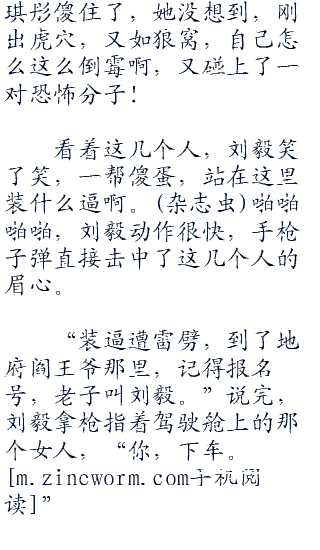 琪彤傻住了，她没想到，刚
出虎穴，又如狼窝，自己怎
么这么倒霉啊，又碰上了一
对恐怖分子！
看着这几个人，刘毅笑
了笑，一帮傻蛋，站在这里
装什么逼啊。(杂志虫)啪啪
啪啪，刘毅动作很快，手枪
子弹直接击中了这几个人的
眉心。
“装逼遭雷劈，到了地
府阎王爷那里，记得报名
号，老子叫刘毅。”说完，
刘毅拿枪指着驾驶舱上的那
个女人，“你，下车。
[m.zincworm.com手机阅
读]”